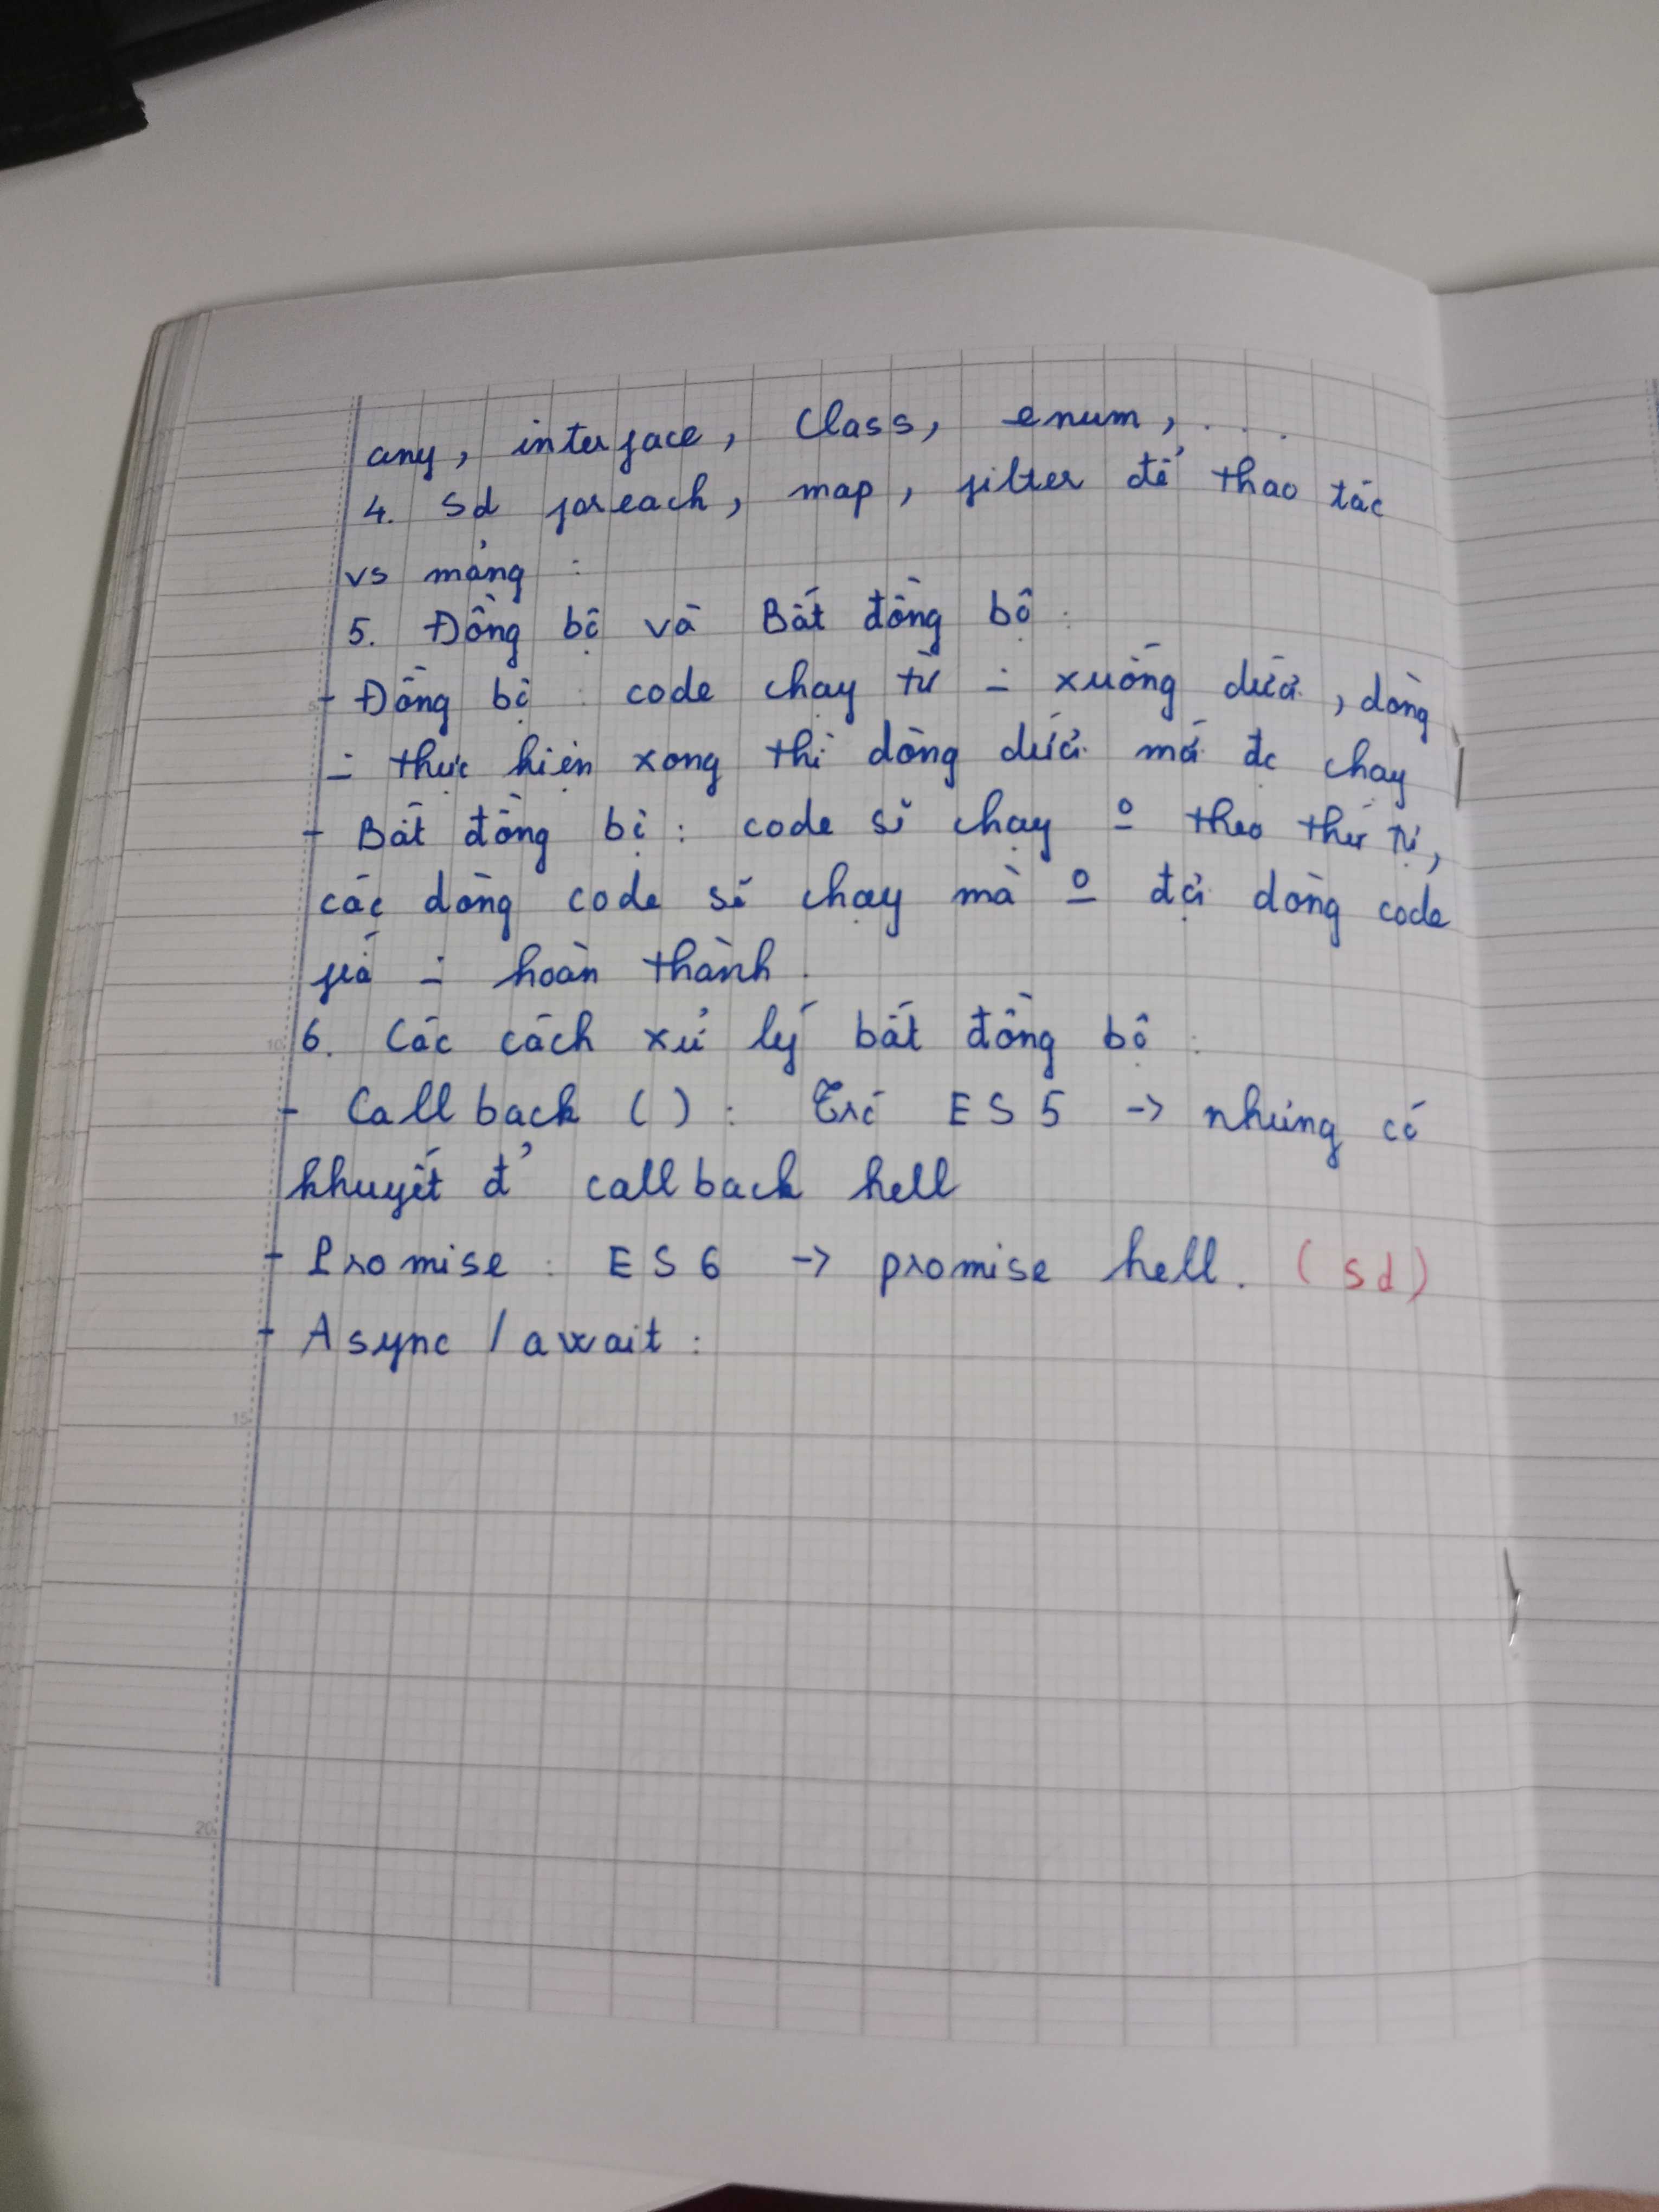 any, interface, Class, enum, ...
4. sd foreach, map, filter để thao tác
vs mảng :
5. Đồng bộ và Bất đồng bộ :
- Đồng bộ : code chạy từ ∸ xuống dưới, dòng
∸ thực hiện xong thì dòng dưới mới đc chạy
- Bất đồng bộ : code sẽ chạy º theo thứ tự,
các dòng code sẽ chạy mà º đợi dòng code
phía ∸ hoàn thành.
6. Các cách xử lý bất đồng bộ :
- Callback ( ) : ES5 -> nhưng có
khuyết đ' callback hell
- Promise : ES6 -> promise hell. (sd)
- Async / await :